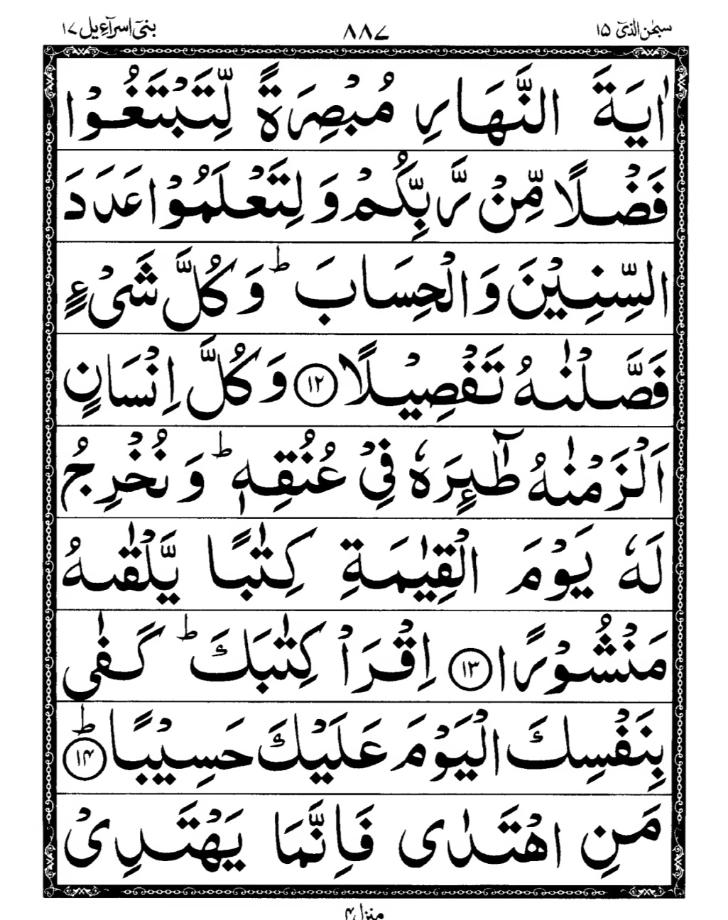 سبحٰن الذیٓ ۱۵ ۸۸۷ بنیٓ اسرآءیل ۱۷
اٰیَةَ النَّهَارِ مُبْصِرَةً لِّتَبْتَغُوْا
فَضْلًا مِّنْ رَّبِّكُمْ وَ لِتَعْلَمُوْا عَدَدَ
السِّنِیْنَ وَ الْحِسَابَ ؕ وَ كُلَّ شَیْءٍ
فَصَّلْنٰهُ تَفْصِیْلًا ۱۲ وَ كُلَّ اِنْسَانٍ
اَلْزَمْنٰهُ طٰٓئِرَهٗ فِیْ عُنُقِهٖ ؕ وَ نُخْرِجُ
لَهٗ یَوْمَ الْقِیٰمَةِ كِتٰبًا یَّلْقٰىهُ
مَنْشُوْرًا ۱۳ اِقْرَاْ كِتٰبَكَ ؕ كَفٰی
بِنَفْسِكَ الْیَوْمَ عَلَیْكَ حَسِیْبًا ؕ ۱۴
مَنِ اهْتَدٰی فَاِنَّمَا یَهْتَدِیْ
منزل ۴